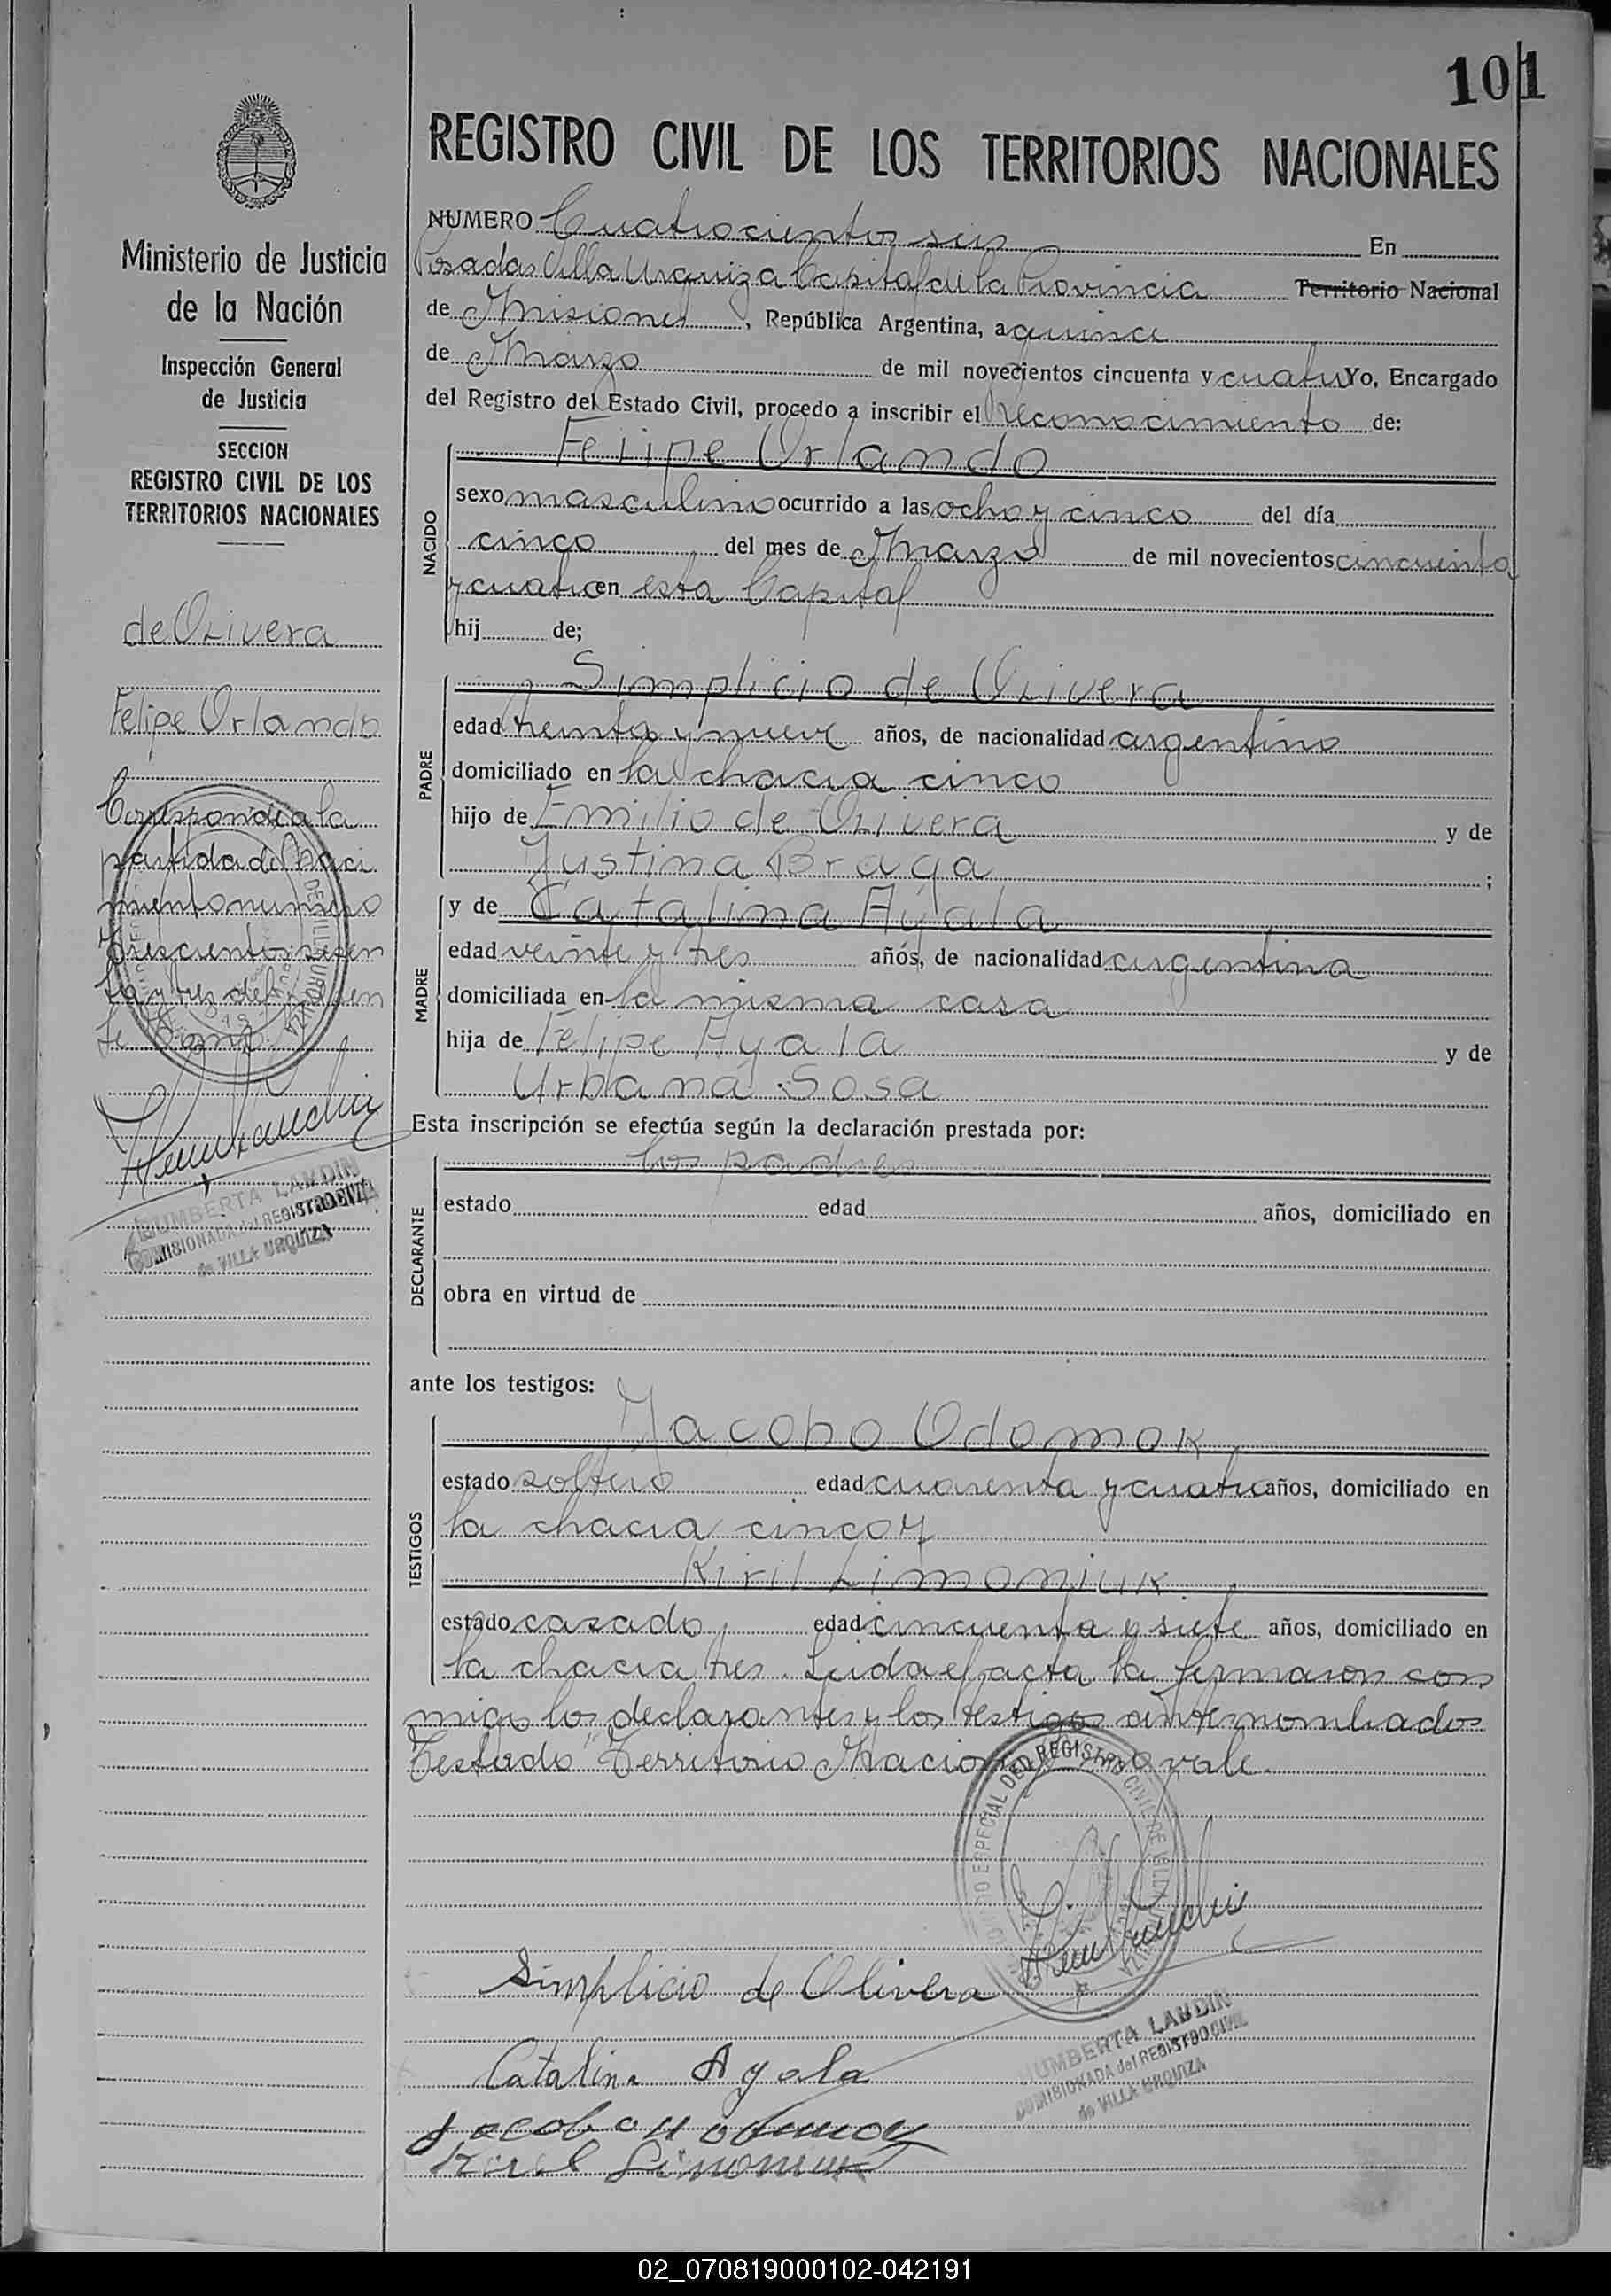 101
REGISTRO CIVIL DE LOS TERRITORIOS NACIONALES
Ministerio de Justicia
de la Nación
Inspección General
de Justicia
SECCION
REGISTRO CIVIL DE LOS
TERRITORIOS NACIONALES
de Olivera
Felipe Orlando
Corresponde a la
partida de Naci
miento numero
trescientos sesen
ta y tres del
HUMBERTA LANDIN
COMISIONADA del REGISTRO CIVIL
de VILLA URQUIZA
NUMERO Cuatrocientos seis En
Posadas Villa Urquiza Capital de la Provincia Territorio Nacional
de Misiones, República Argentina, a quince
de Marzo de mil novecientos cincuenta y cuatro Yo, Encargado
del Registro del Estado Civil, procedo a inscribir el Reconocimiento de:
NACIDO
Felipe Orlando
sexo masculino ocurrido a las ocho y cinco del día
cinco del mes de Marzo de mil novecientos cincuenta
y cuatro en esta Capital
hij de;
PADRE
Simplicio de Olivera
edad treinta y nueve años, de nacionalidad argentino
domiciliado en la chacra cinco
hijo de Emilio de Olivera y de
Justina Braga ;
MADRE
y de Catalina Ayala
edad veinte y tres años, de nacionalidad argentina
domiciliada en la misma casa
hija de Felipe Ayala y de
Urbana Sosa
Esta inscripción se efectúa según la declaración prestada por:
DECLARANTE
los padres
estado edad años, domiciliado en
obra en virtud de
ante los testigos:
TESTIGOS
Jacobo Odomok
estado soltero edad cuarenta y cuatro años, domiciliado en
la chacra cinco y
Kiril Limoniuk
estado casado edad cincuenta y siete años, domiciliado en
la chacra tres. Leida el acta la firmaron con
migo los declarantes y los testigos antesnombrados
Testado "Territorio Nacional" no vale.
DEL REGISTRO CIVIL DE VILLA
Simplicio de Olivera
HUMBERTA LANDIN
COMISIONADA del REGISTRO CIVIL
de VILLA URQUIZA
Catalina Ayala
02_070819000102-042191